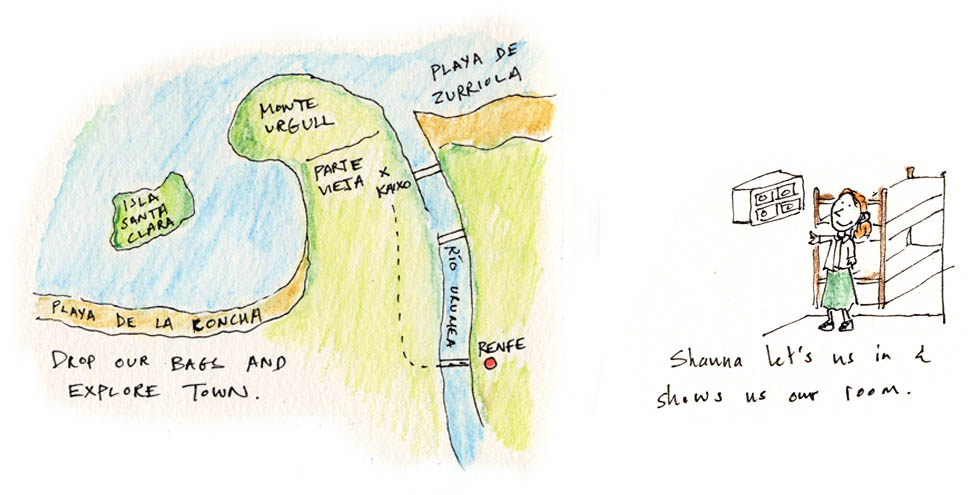 PLAYA DE
ZURRIOLA
MONTE
URGULL
PARTE
VIEJA
x
KAIXO
ISLA
SANTA
CLARA
RÍO URUMEA
PLAYA DE LA RONCHA
RENFE
DROP OUR BAGS AND
EXPLORE TOWN.
Shauna let's us in &
shows us our room.